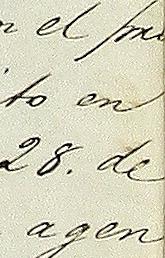 n el pri
to en
28. de
agen